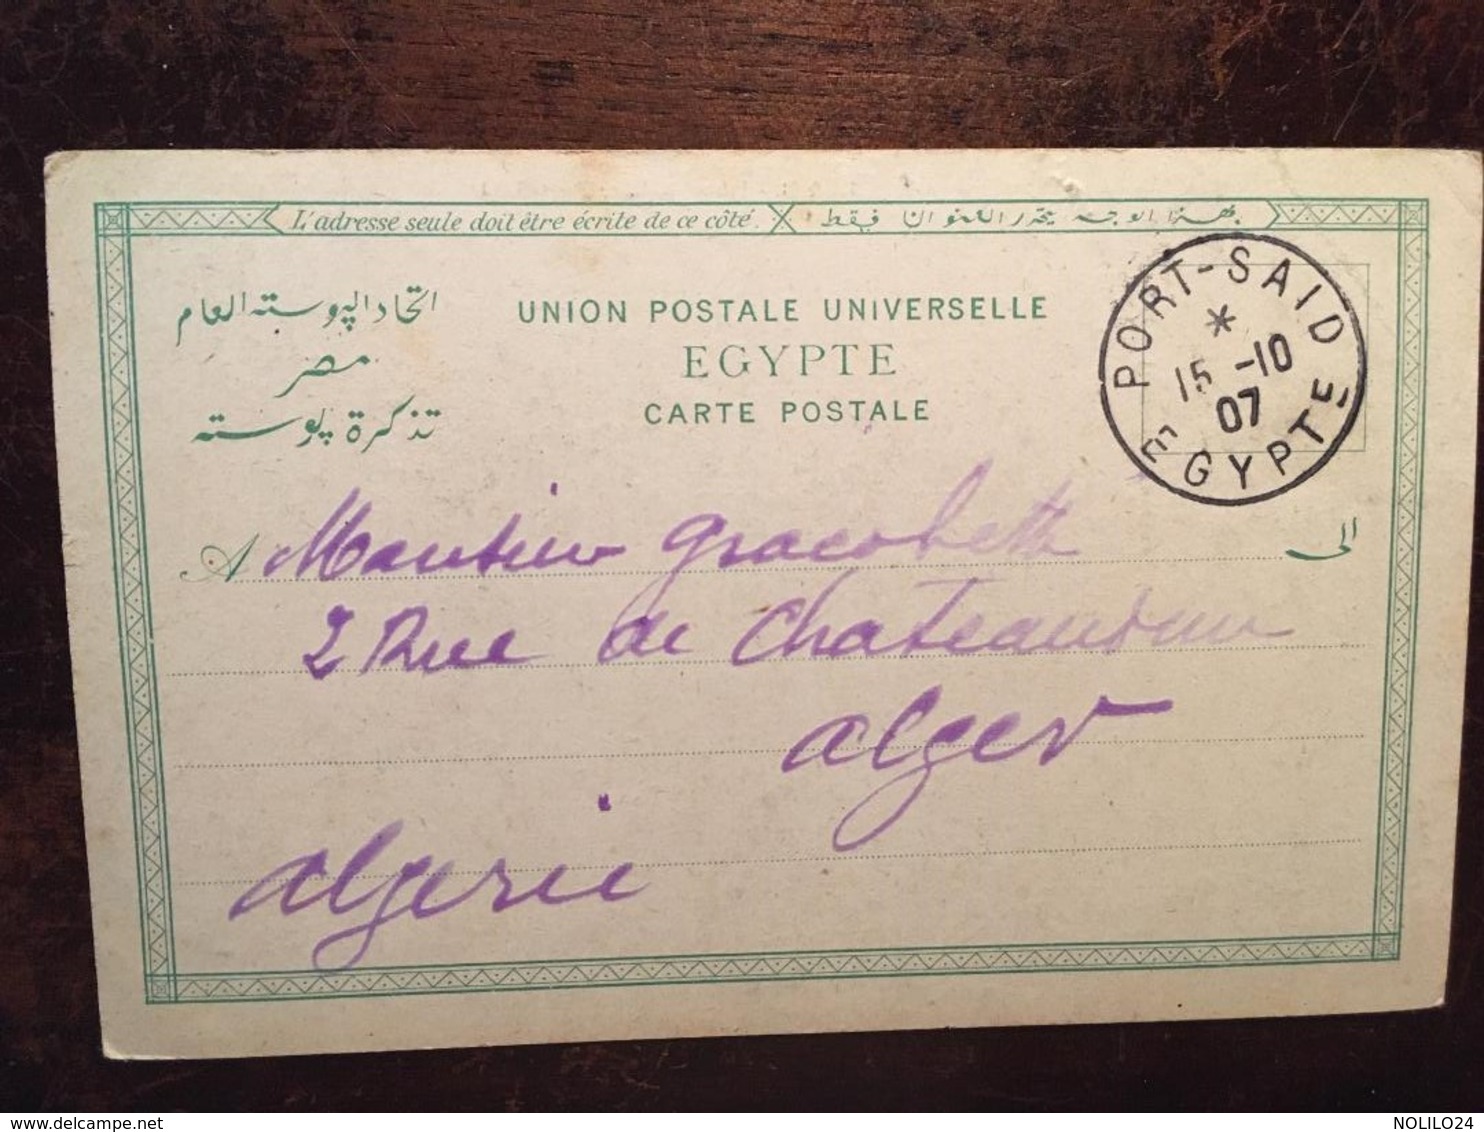 L'adresse seule doit être écrite de ce côté. بهذا الوجه يحرر العنوان فقط
اتحاد البوسته العام
مصر
تذكرة بوسته
UNION POSTALE UNIVERSELLE
EGYPTE
CARTE POSTALE
PORT-SAID
15-10
07
EGYPTE
A Monsieur الى
2 Rue de Chateaudun
Alger
Algerie
www.delcampe.net
NOLILO24